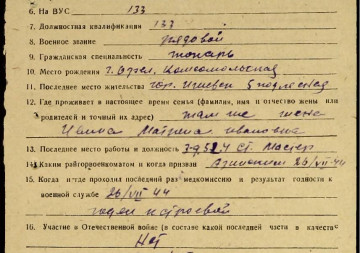 6. На ВУС 133
7. Должностная квалификация 133
8. Военное звание рядовой
9. Гражданская специальность токарь
10. Место рождения г. Орел, Комсомольская
11. Последнее место жительства гор. Ижевск 5 подлесная
12. Где проживает в настоящее время семья (фамилия, имя и отчество жены или
родителей и точный их адрес) там же жена
Матрена Ивановна
13. Последнее место работы и должность з-д 524 ст. Мастер
14. Каким райгорвоенкоматом и когда призван 26/VII-44
15. Когда и где проходил последний раз медкомиссию и результат годности к
военной службе 26/VII 44
годен к строевой
16. Участие в Отечественной войне (в составе какой последней части в качестве
Нет